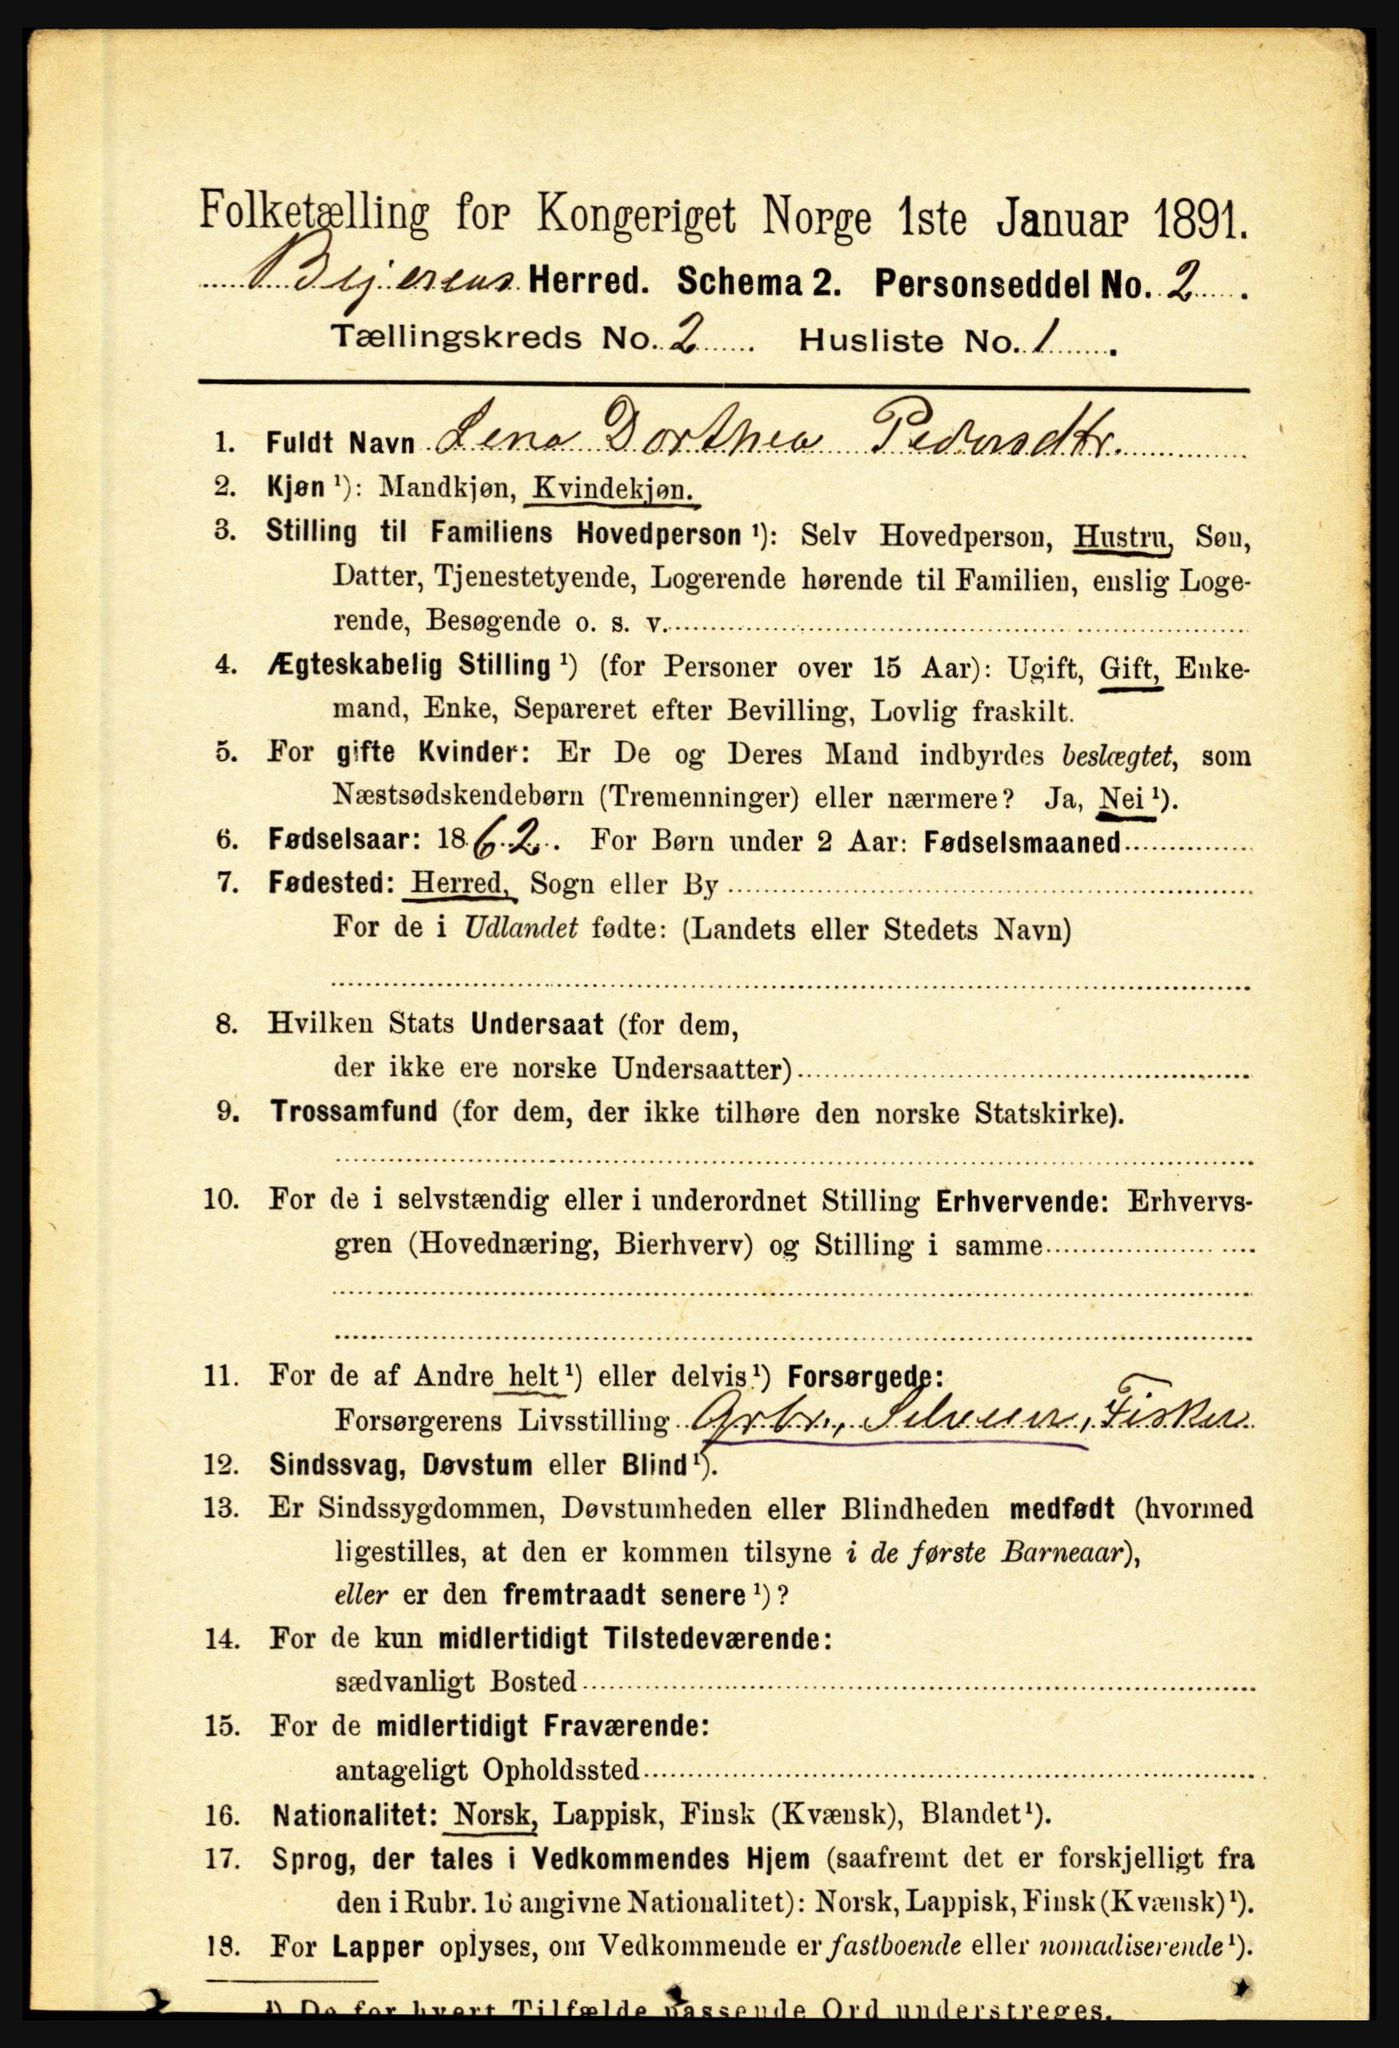 Folketælling for Kongeriget Norge 1ste Januar 1891.
Bejerens Herred. Schema 2. Personseddel No. 2.
Tællingskreds No. 2. Husliste No. 1.
1. Fuldt Navn Lena Dorthea Pedersdtr.
2. Kjøn ¹): Mandkjøn, Kvindekjøn.
3. Stilling til Familiens Hovedperson ¹): Selv Hovedperson, Hustru, Søn,
Datter, Tjenestetyende, Logerende hørende til Familien, enslig Loge-
rende, Besøgende o. s. v.
4. Ægteskabelig Stilling ¹) (for Personer over 15 Aar): Ugift, Gift, Enke-
mand, Enke, Separeret efter Bevilling, Lovlig fraskilt.
5. For gifte Kvinder: Er De og Deres Mand indbyrdes beslægtet, som
Næstsødskendebørn (Tremenninger) eller nærmere? Ja, Nei ¹).
6. Fødselsaar: 1862. For Børn under 2 Aar: Fødselsmaaned
7. Fødested: Herred, Sogn eller By
For de i Udlandet fødte: (Landets eller Stedets Navn)
8. Hvilken Stats Undersaat (for dem,
der ikke ere norske Undersaatter)
9. Trossamfund (for dem, der ikke tilhøre den norske Statskirke).
10. For de i selvstændig eller i underordnet Stilling Erhvervende: Erhvervs-
gren (Hovednæring, Bierhverv) og Stilling i samme
11. For de af Andre helt ¹) eller delvis ¹) Forsørgede:
Forsørgerens Livsstilling Grbr., Selveier, Fisker
12. Sindssvag, Døvstum eller Blind ¹).
13. Er Sindssygdommen, Døvstumheden eller Blindheden medfødt (hvormed
ligestilles, at den er kommen tilsyne i de første Barneaar),
eller er den fremtraadt senere ¹)?
14. For de kun midlertidigt Tilstedeværende:
sædvanligt Bosted
15. For de midlertidigt Fraværende:
antageligt Opholdssted
16. Nationalitet: Norsk, Lappisk, Finsk (Kvænsk), Blandet ¹).
17. Sprog, der tales i Vedkommendes Hjem (saafremt det er forskjelligt fra
den i Rubr. 16 angivne Nationalitet): Norsk, Lappisk, Finsk (Kvænsk) ¹).
18. For Lapper oplyses, om Vedkommende er fastboende eller nomadiserende ¹).
¹) De for hvert Tilfælde passende Ord understreges.